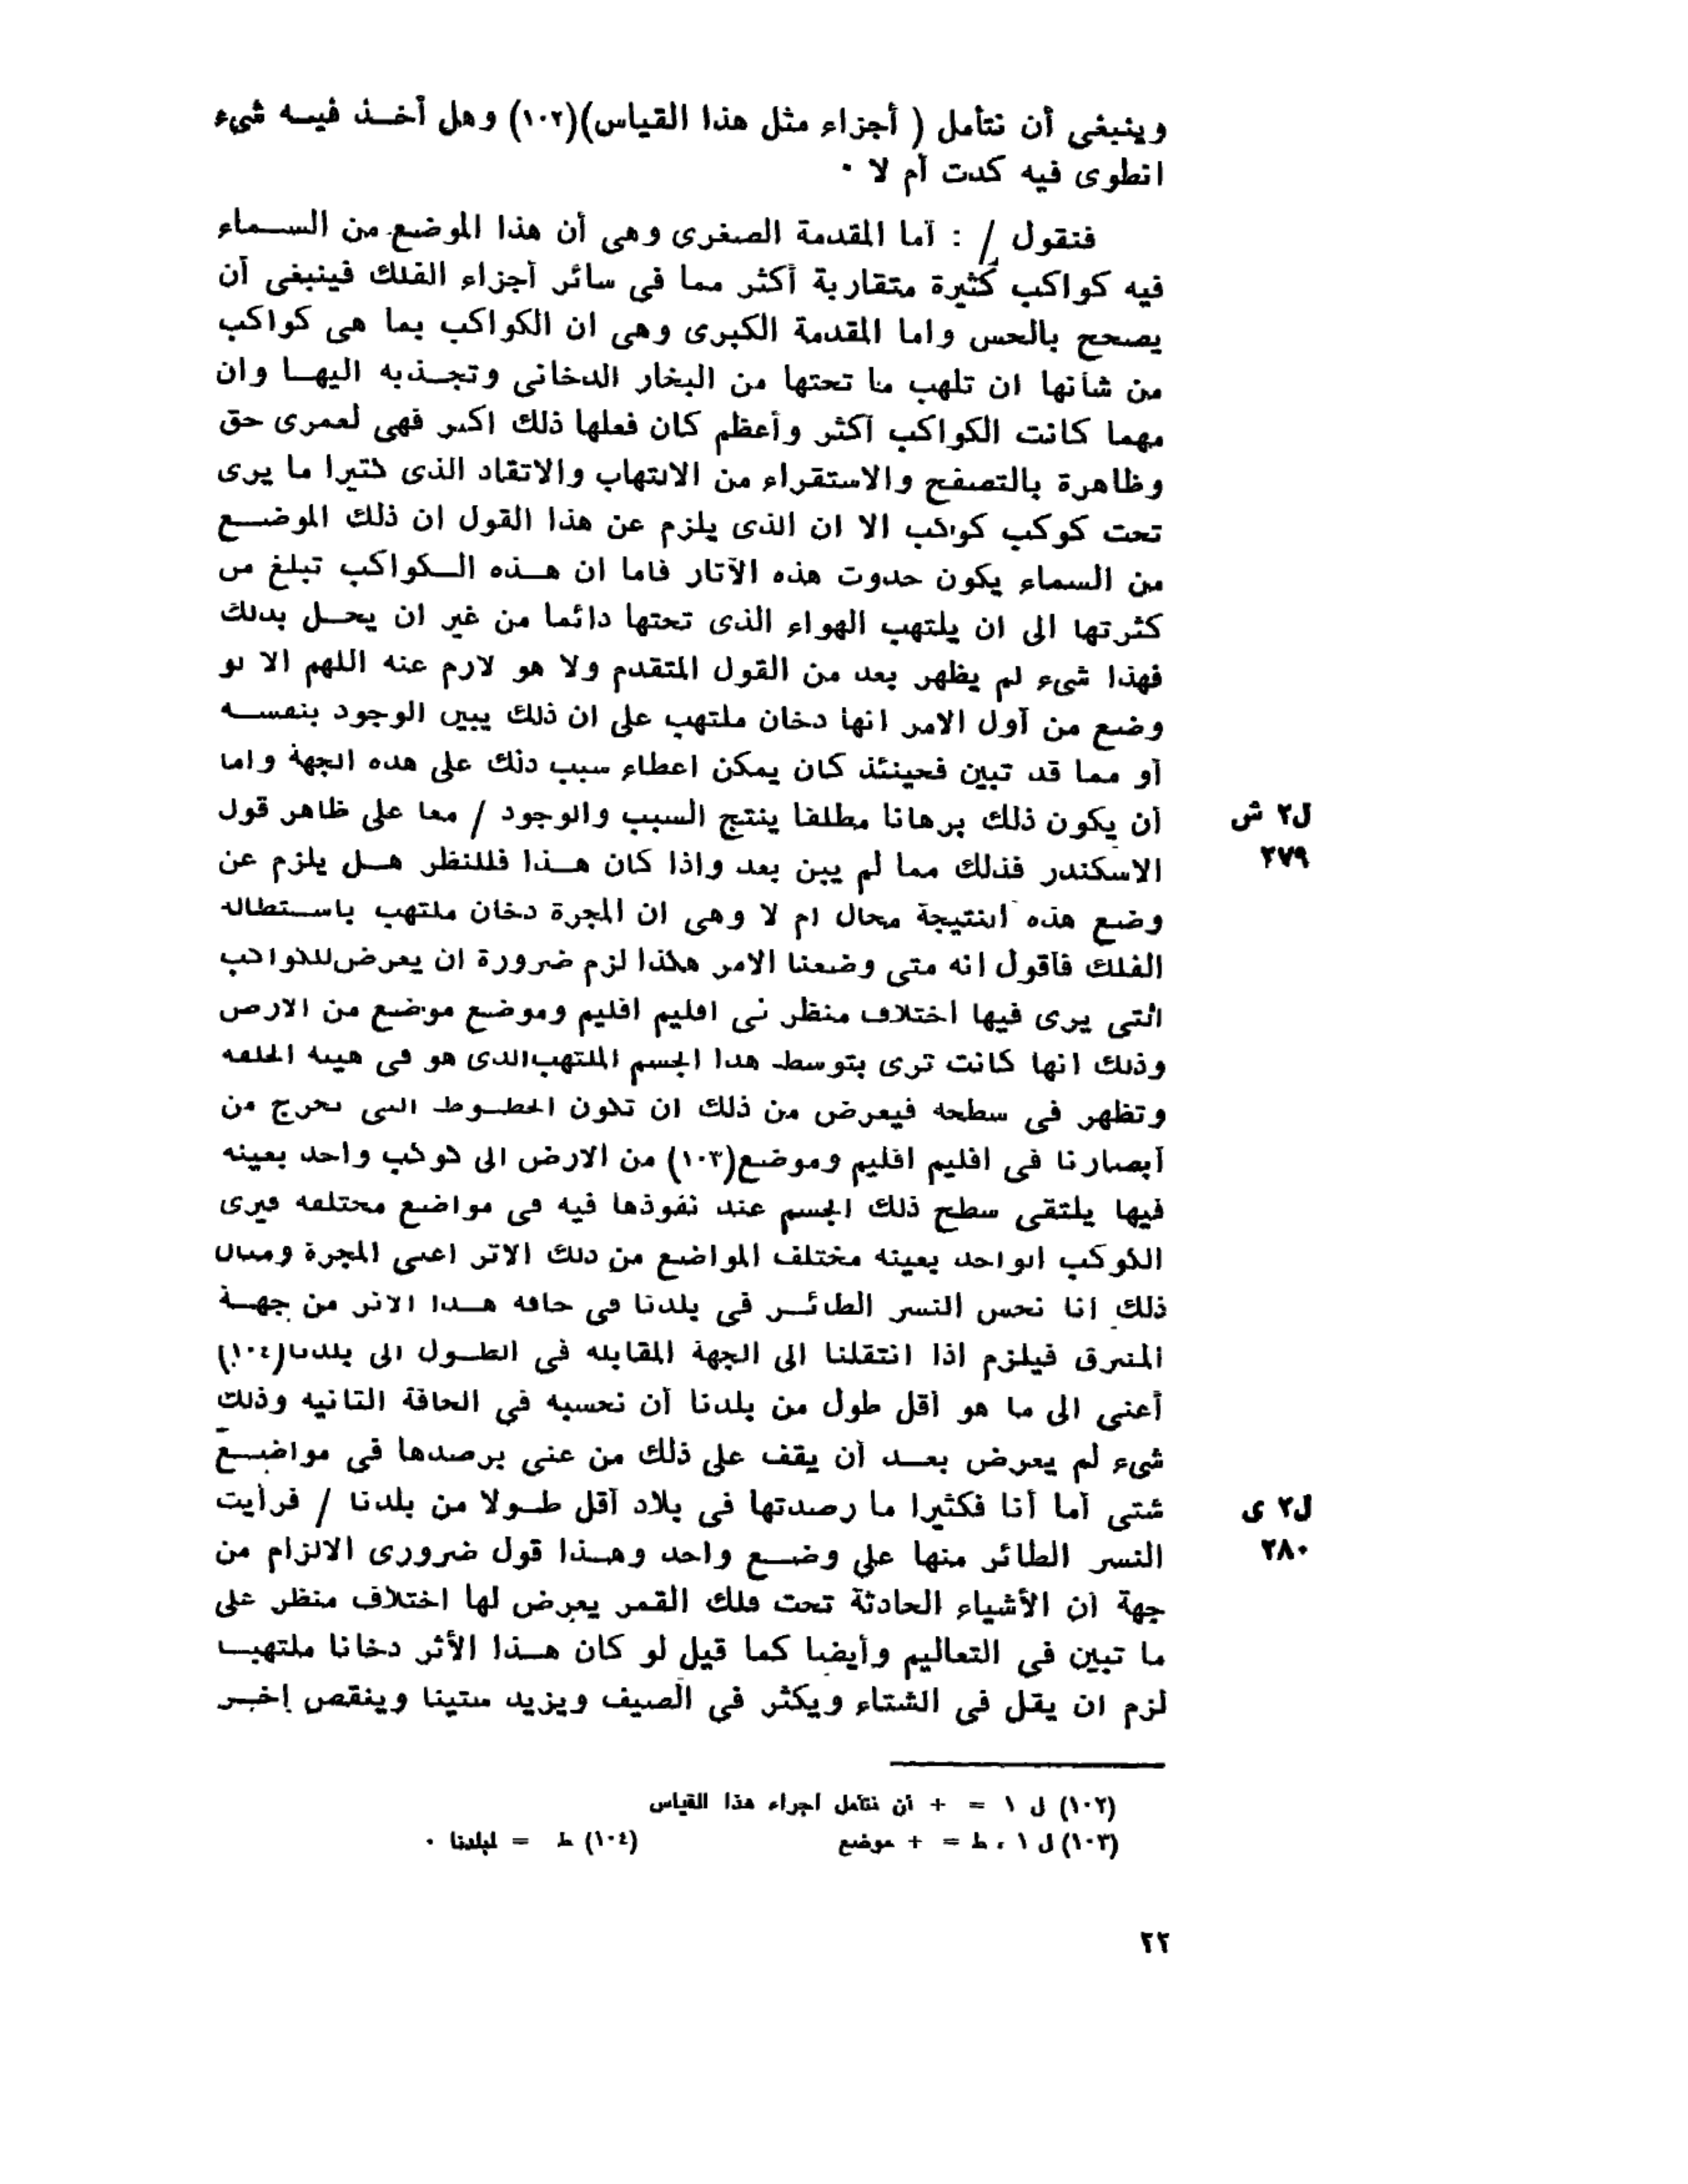 وينبغى أن نتأمل ( أجزاء مثل هذا القياس)(١٠٢) وهل أخـذ فيـه شىء
انطوى فيه كدت أم لا ٠
فنقول / : أما المقدمة الصغرى وهى أن هذا الموضع من الســماء
فيه كواكب كثيرة متقاربة أكثر مما فى سائر أجزاء الفلك فينبغى أن
يصحح بالحس واما المقدمة الكبرى وهى ان الكواكب بما هى كواكب
من شأنها ان تلهب ما تحتها من البخار الدخانى وتجـذبه اليهـا وان
مهما كانت الكواكب أكثر وأعظم كان فعلها ذلك اكبر فهى لعمرى حق
وظاهرة بالتصفح والاستقراء من الالتهاب والاتقاد الذى كثيرا ما يرى
تحت كوكب كوكب الا ان الذى يلزم عن هذا القول ان ذلك الموضــع
من السماء يكون حدوث هذه الآثار فاما ان هــذه الــكواكب تبلغ من
كثرتها الى ان يلتهب الهواء الذى تحتها دائما من غير ان يحـل بدلك
فهذا شىء لم يظهر بعد من القول المتقدم ولا هو لازم عنه اللهم الا لو
وضع من أول الامر انها دخان ملتهب على ان ذلك يبين الوجود بنفســه
أو مما قد تبين فحينئذ كان يمكن اعطاء سبب ذلك على هذه الجهة واما
أن يكون ذلك برهانا مطلقا ينتج السبب والوجود / معا على ظاهر قول
ل٢ ش
٢٧٩
الاسكندر فذلك مما لم يبن بعد واذا كان هــذا فللنظر هــل يلزم عن
وضع هذه النتيجة محال ام لا وهى ان المجرة دخان ملتهب باســتطالة
الفلك فأقول انه متى وضعنا الامر هكذا لزم ضرورة ان يعرض للكواكب
التى يرى فيها اختلاف منظر فى اقليم اقليم وموضع موضع من الارض
وذلك انها كانت ترى بتوسط هذا الجسم الملتهب الذى هو فى هيئة الحلقة
وتظهر فى سطحه فيعرض من ذلك ان تكون الخطــوط التى تخرج من
أبصارنا فى اقليم اقليم وموضع(١٠٣) من الارض الى كوكب واحد بعينه
فيها يلتقى سطح ذلك الجسم عند نفوذها فيه فى مواضع مختلفه فيرى
الكوكب الواحد بعينه مختلف المواضع من ذلك الاثر اعنى المجرة ومثال
ذلك أنا نحس النسر الطائــر فى بلدنا فى حافة هــذا الاثر من جهــة
المشرق فيلزم اذا انتقلنا الى الجهة المقابله فى الطــول الى بلدنا(١٠٤)
أعنى الى ما هو أقل طول من بلدنا أن نحسبه فى الحافة الثانيه وذلك
شىء لم يعرض بعــد أن يقف على ذلك من عنى برصدها فى مواضــع
شتى أما أنا فكثيرا ما رصدتها فى بلاد أقل طــولا من بلدنا / فرأيت
ل٢ ى
٢٨٠
النسر الطائر منها على وضــع واحد وهــذا قول ضرورى الالزام من
جهة أن الأشياء الحادثة تحت فلك القمر يعرض لها اختلاف منظر على
ما تبين فى التعاليم وأيضا كما قيل لو كان هــذا الأثر دخانا ملتهبــا
لزم ان يقل فى الشتاء ويكثر فى الصيف ويزيد ستينا وينقص إخــر
(١٠٢) ل ١ = + أن نتأمل اجزاء هذا القياس
(١٠٣) ل ١ ، ط = + موضع (١٠٤) ط = لبلدنا ٠
٢٢